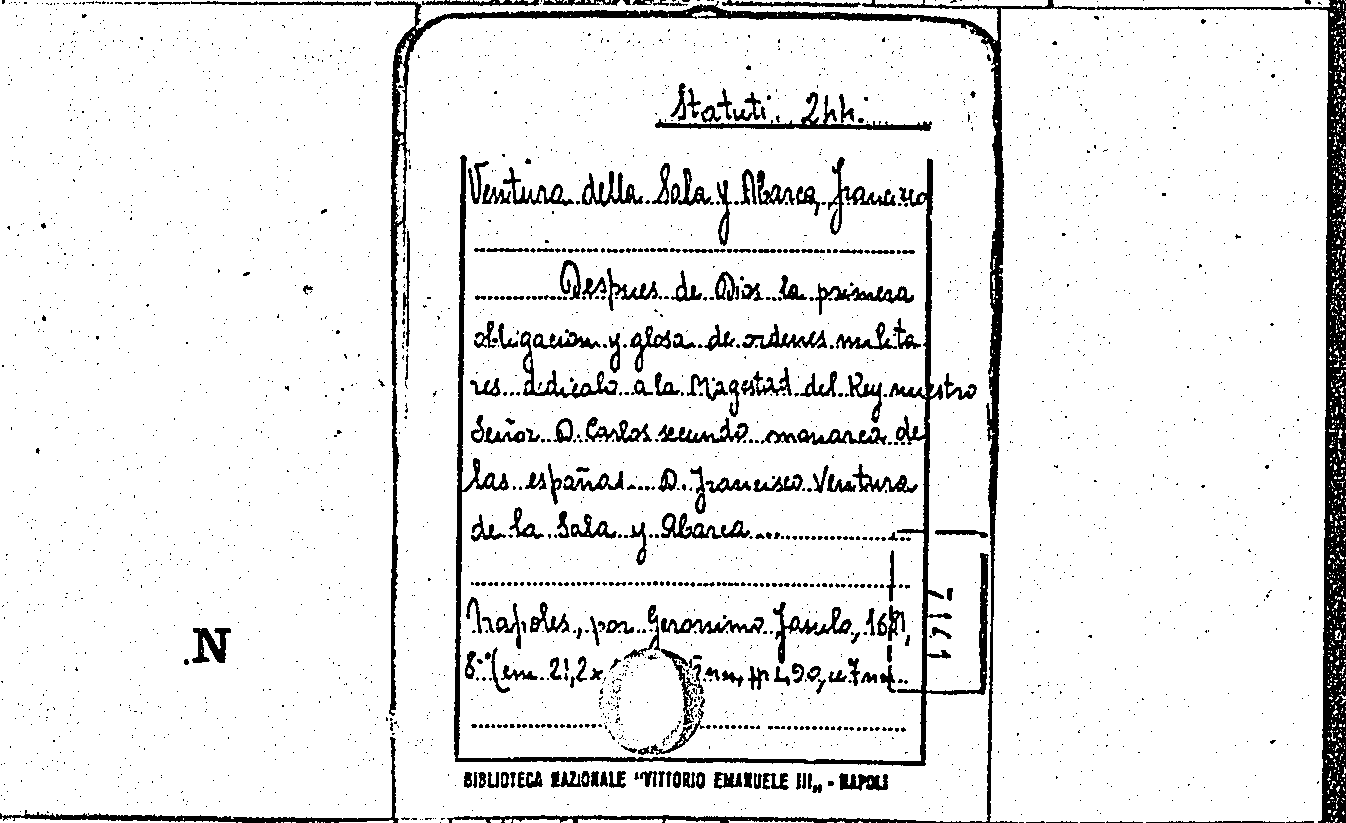 Statuti. 244.
Ventura della Sala y Abarca, Francisco
Despues de Dios la primera
obligacion y glosa de ordenes milita
res dedicalo a la Magestad del Rey nuestro
Señor D. Carlos secundo monarca de
las españas D. Francisco Ventura
de la Sala y Abarca...
Napoles, por Geronimo Fasulo, 1681,
8.° (cm. 21,2x
.N
BIBLIOTECA NAZIONALE "VITTORIO EMANUELE III„ - NAPOLI